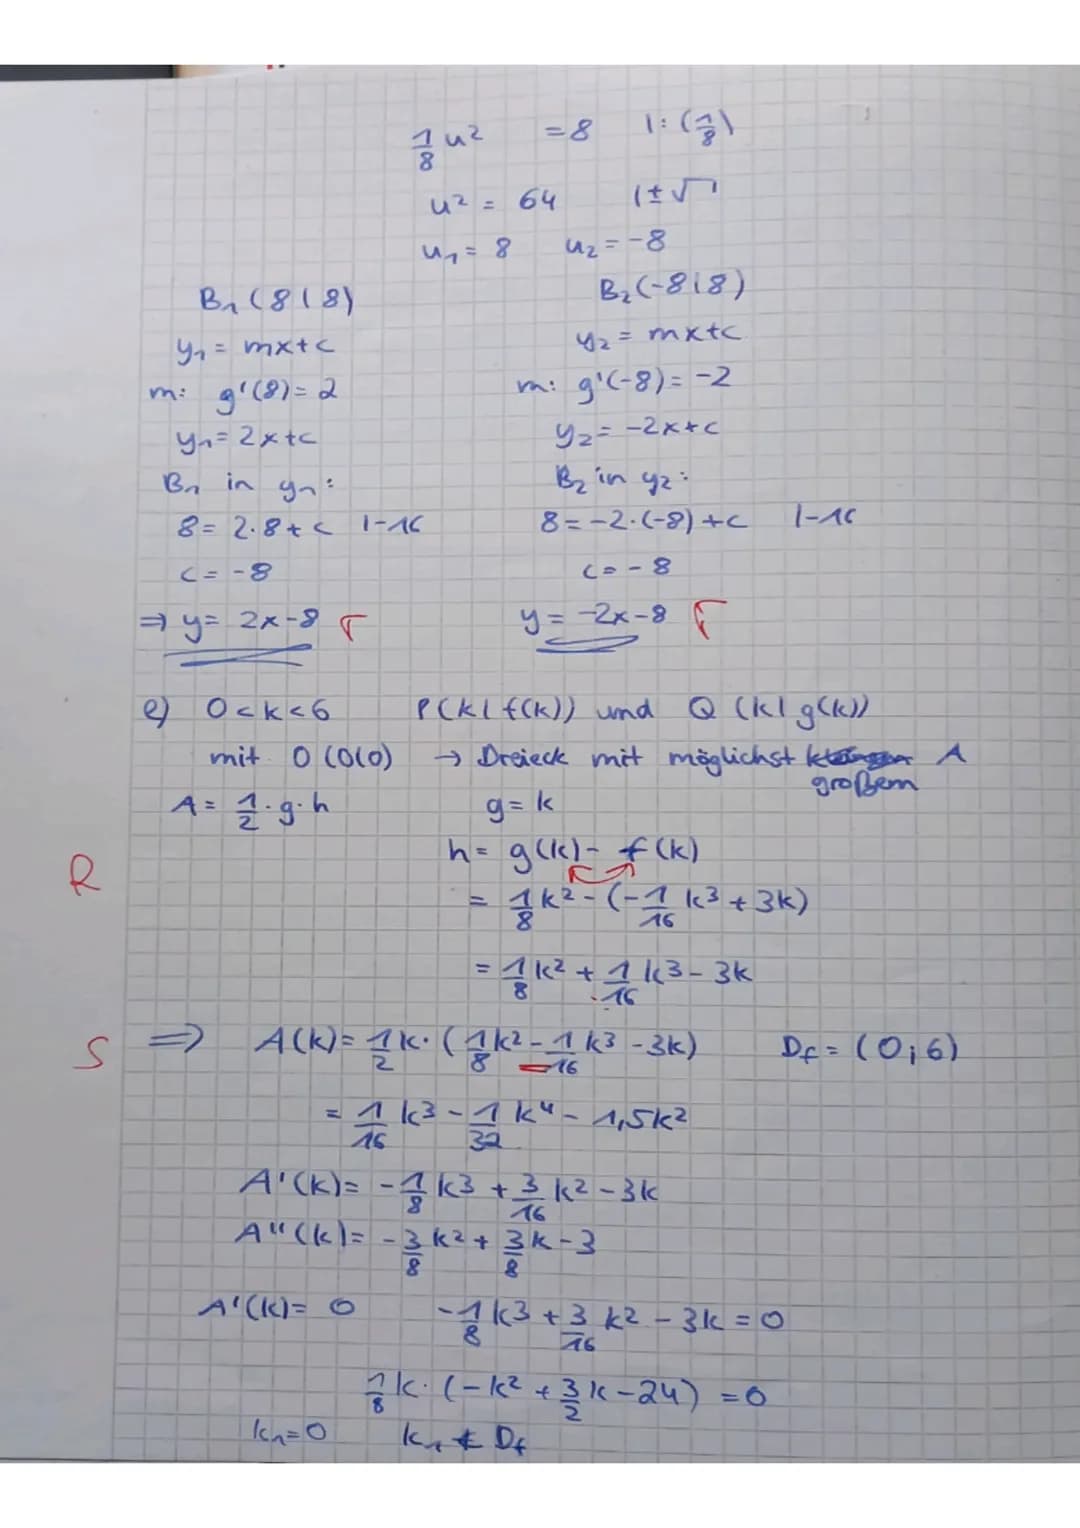 1/8 u² = 8 |: (1/8)
u² = 64 |±√
u₁ = 8 u₂ = -8
B₁ (8|8) B₂ (-8|8)
y₁ = mx+c y₂ = mx+c
m: g'(8) = 2 m: g'(-8) = -2
y₁ = 2x+c y₂ = -2x+c
B₁ in y₁: B₂ in y₂:
8 = 2·8+c |-16 8 = -2·(-8)+c |-16
c = -8 c = -8
⇒ y = 2x-8 r y = -2x-8 r
e) 0<k<6 P(k|f(k)) und Q (k|g(k))
mit O (0|0) → Dreieck mit möglichst großem A
A = 1/2·g·h g = k
h = g(k) - f(k)
R = 1/8 k² - (-1/16 k³ + 3k)
= 1/8 k² + 1/16 k³ - 3k
S ⇒ A(k) = 1/2 k · (1/8 k² - 1/16 k³ - 3k) Df = (0;6)
= 1/16 k³ - 1/32 k⁴ - 1,5k²
A'(k) = -1/8 k³ + 3/16 k² - 3k
A''(k) = -3/8 k² + 3/8 k - 3
A'(k) = 0 -1/8 k³ + 3/16 k² - 3k = 0
1/8 k · (-k² + 3/2 k - 24) = 0
k₁ = 0 k₁ ∉ Df